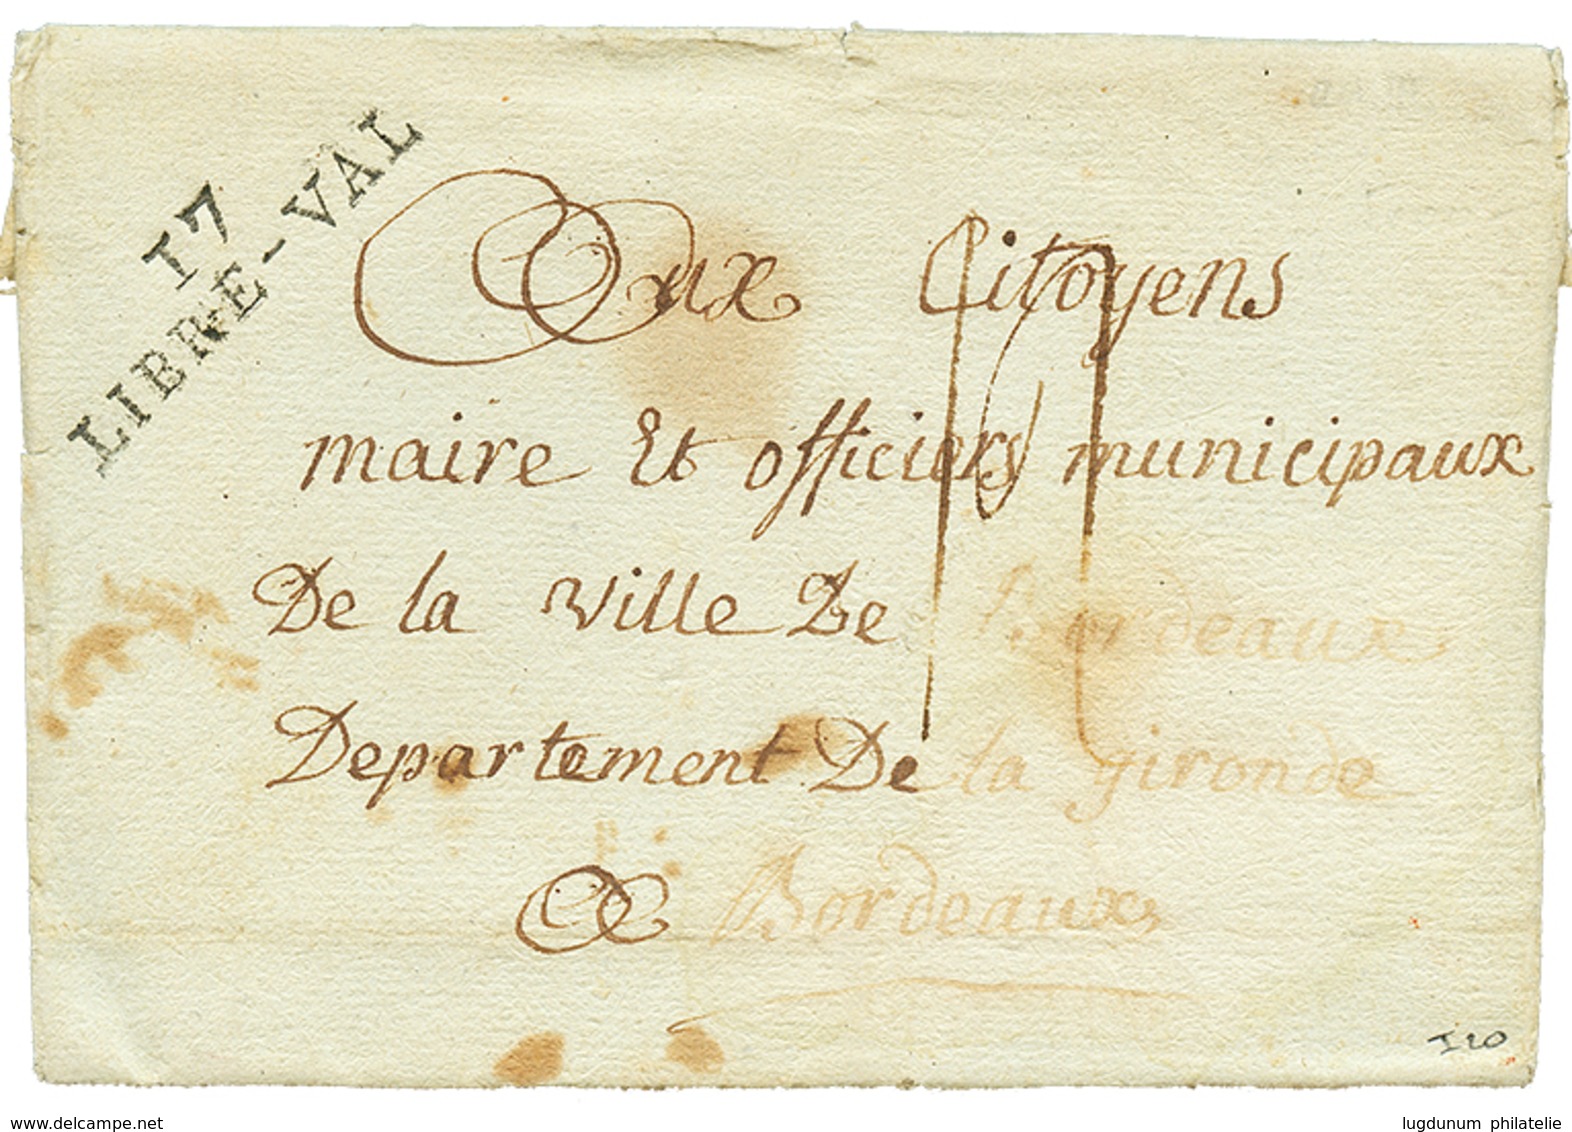 17
LIBRE-VAL
Aux Citoyens
maire Et officiers municipaux
De la Ville De Bordeaux
Departement De la gironde
A Bordeaux
www.delcampe.net
lugdunum philatelie